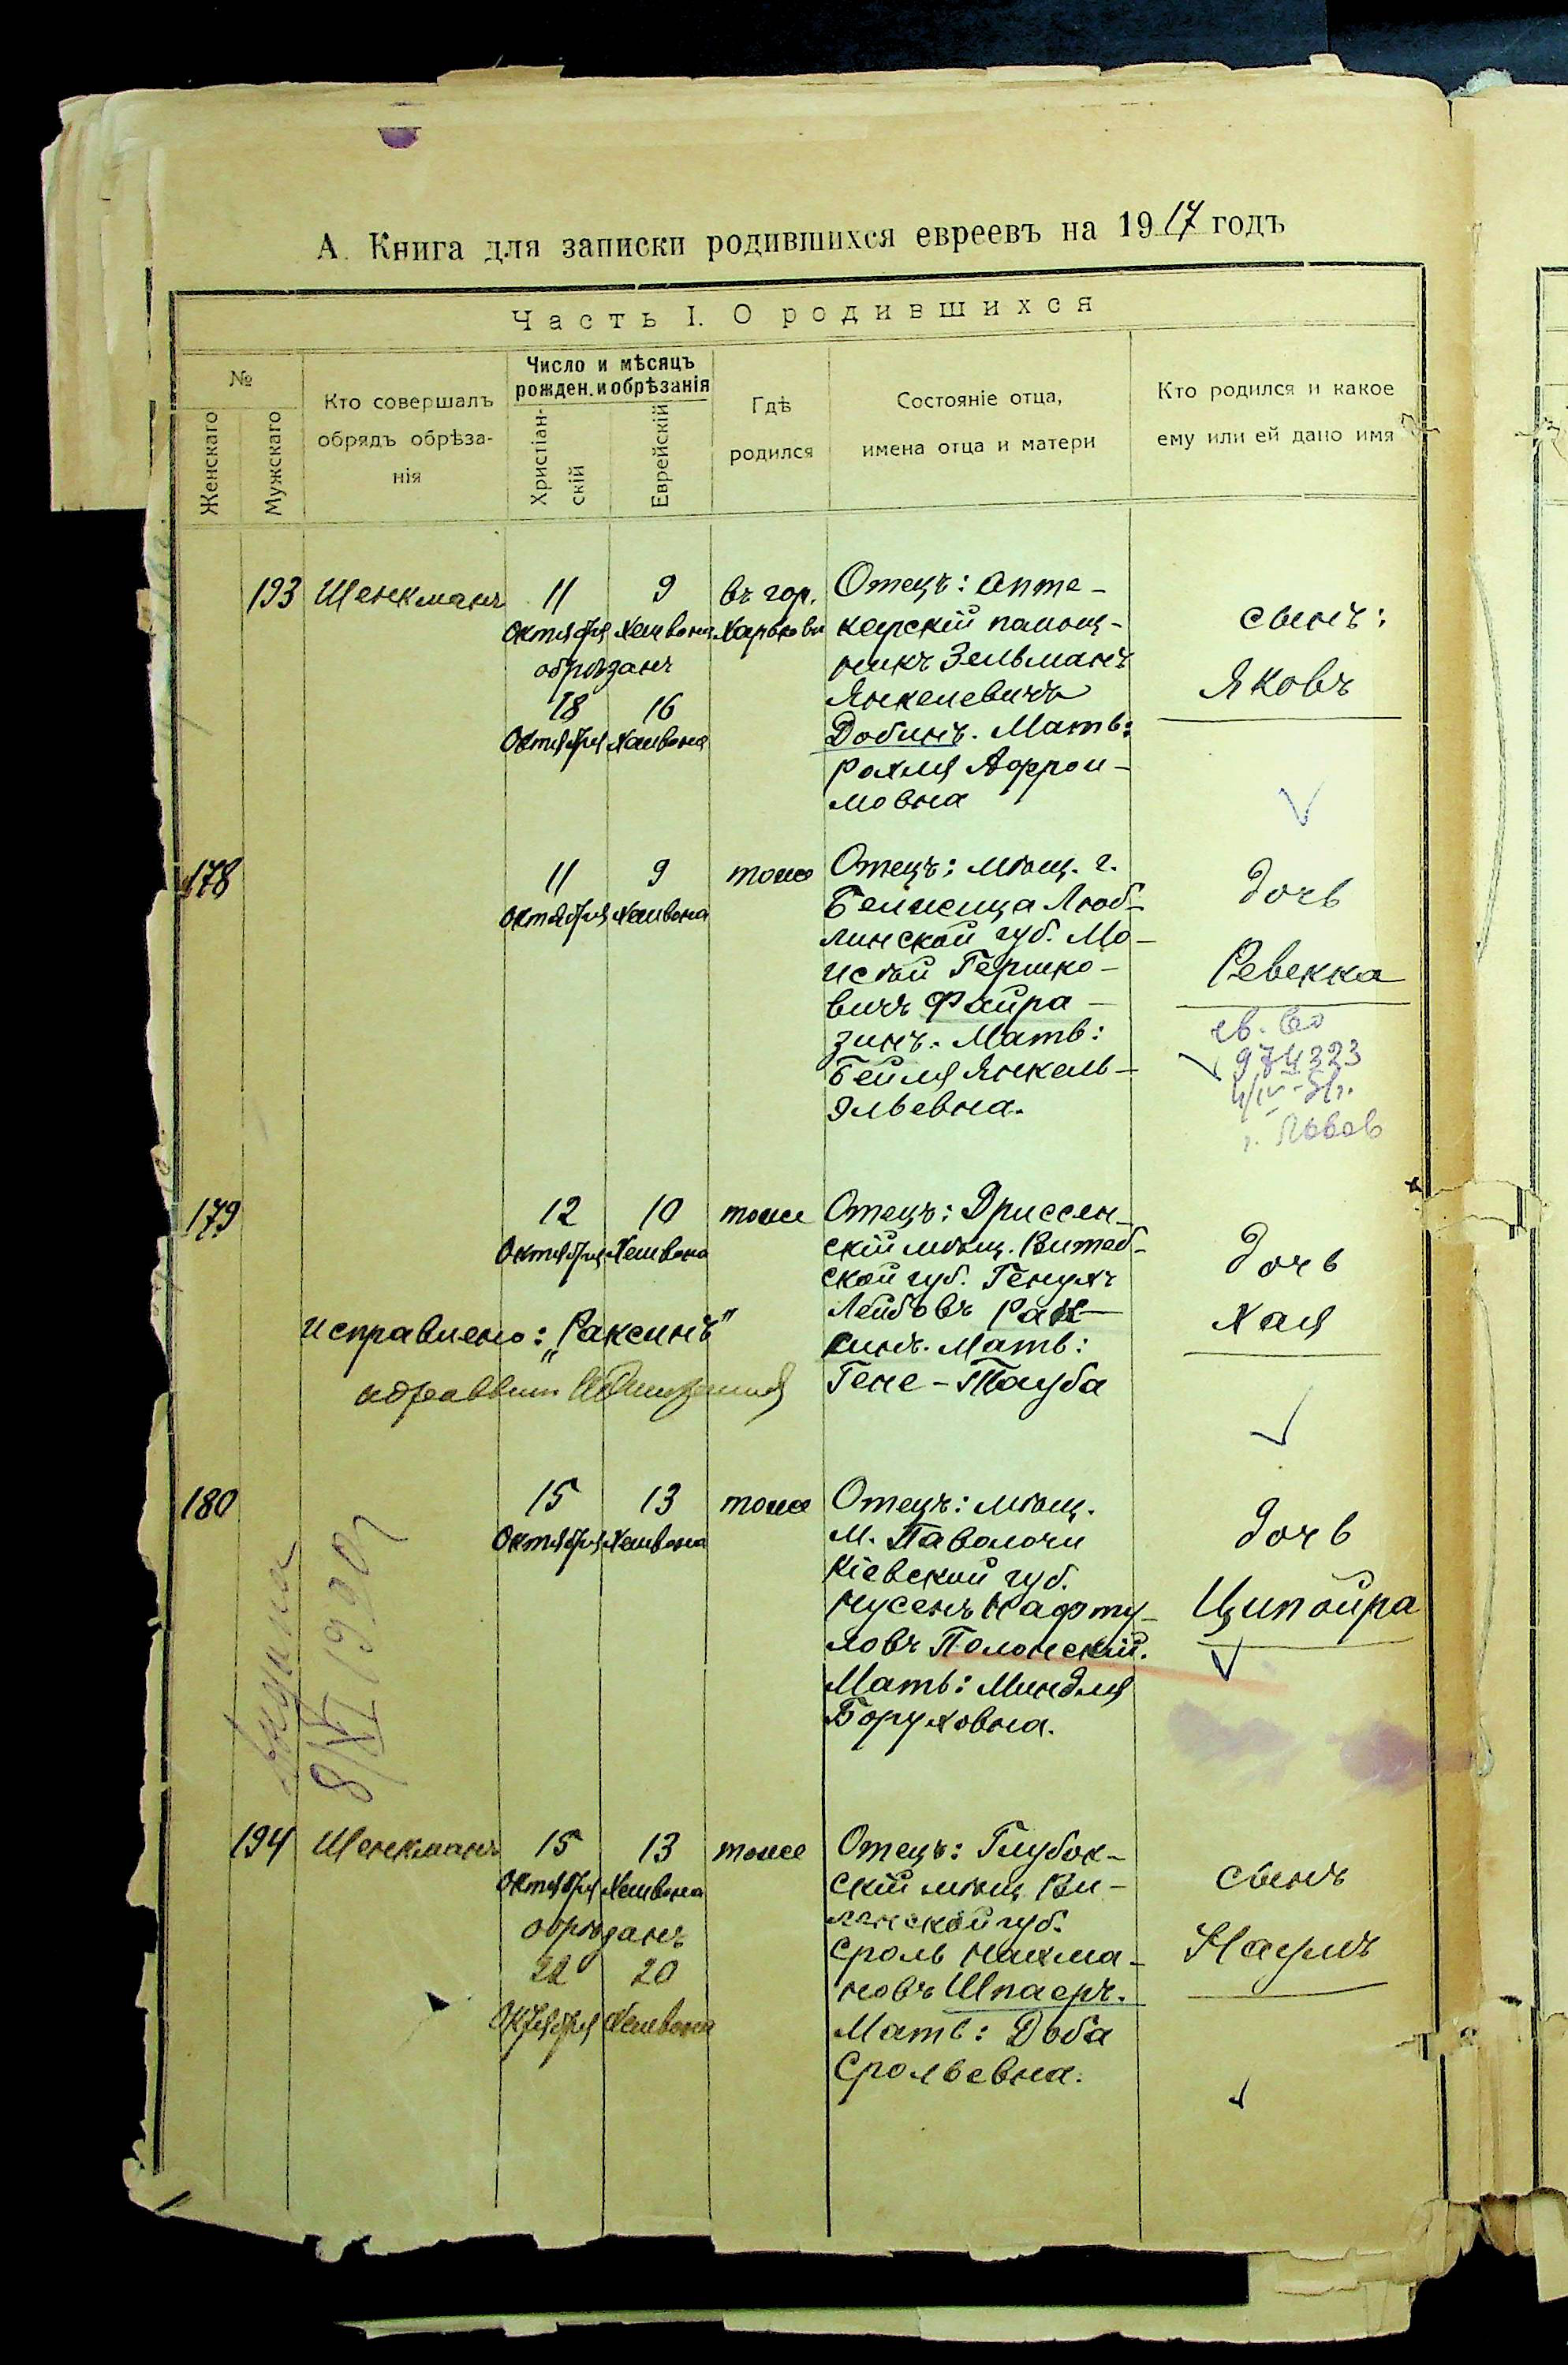 А. Книга для записки родившихся евреевъ на 1917 годъ
Часть I. О родившихся
№
Женскаго
Мужскаго
Кто совершалъ
обрядъ обрѣза-
нія
Число и мѣсяцъ
рожден. и обрѣзанія
Христіан-
скій
Еврейскій
Гдѣ
родился
Состояніе отца,
имена отца и матери
Кто родился и какое
ему или ей дано имя
193 Шенкманъ
11 9
Октября Хешвона
обрѣзанъ
18 16
Октября Хешвона
въ гор.
Харьковѣ
Отецъ: Апте-
карскій помощ-
никъ Зельманъ
Янкелевичъ
Добинъ. Мать:
Рохля Афрои-
мовна
сынъ:
Яковъ
178
11 9
Октября Хешвона
тоже
Отецъ: мѣщ. г.
Белжица Люб-
линской губ. Мо-
исѣй Гершко-
вичъ Файра-
зинъ. Мать:
Бейля Янкель-
Эльевна.
дочь
Ревекка
св. во
974323
г. Львов
179
12 10
Октября Хешвона
тоже
Отецъ: Дриссен-
скій мѣщ. Витеб-
ской губ. Генухъ
Лейбовъ Рак-
синъ. Мать:
Гене-Тауба
дочь
Хая
исправлено: "Раксинъ"
180
15 13
Октября Хешвона
тоже
Отецъ: мѣщ.
м. Паволочи
Кіевской губ.
Нусенъ Нафту-
ловъ Полонскій.
Мать: Миндля
Боруховна.
дочь
Ципойра
8/XI 1990г
194 Шенкманъ
15 13
Октября Хешвона
обрѣзанъ
22 20
Октября Хешвона
тоже
Отецъ: Глубок-
скій мѣщ. Ви-
ленской губ.
Сроль Нахма-
новъ Шпаеръ.
Мать: Доба
Срольевна.
сынъ
Наумъ